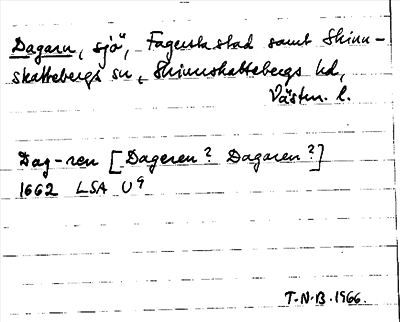 Dagarn, sjö, Fagersta stad samt Skinn-
skattebergs sn, Skinnskattebergs hd,
Västm. l.
Dag-ren [Dageren? Dagaren?]
1662 LSA U9
T.N.B. 1966.